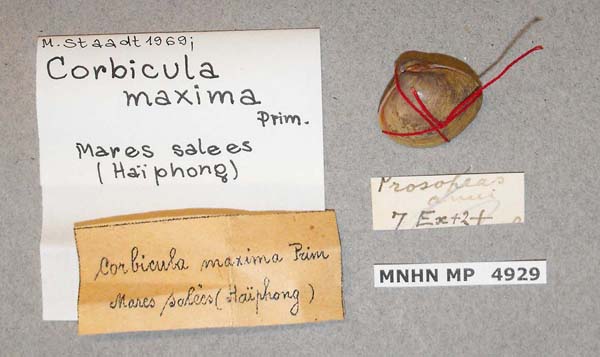 M. Staadt 1969;
Corbicula
maxima
Prim.
Mares salees
(Haïphong)
Corbicula maxima Prim
Mares salées (Haïphong)
Prosopeas
7 Ex+2+
MNHN MP 4929